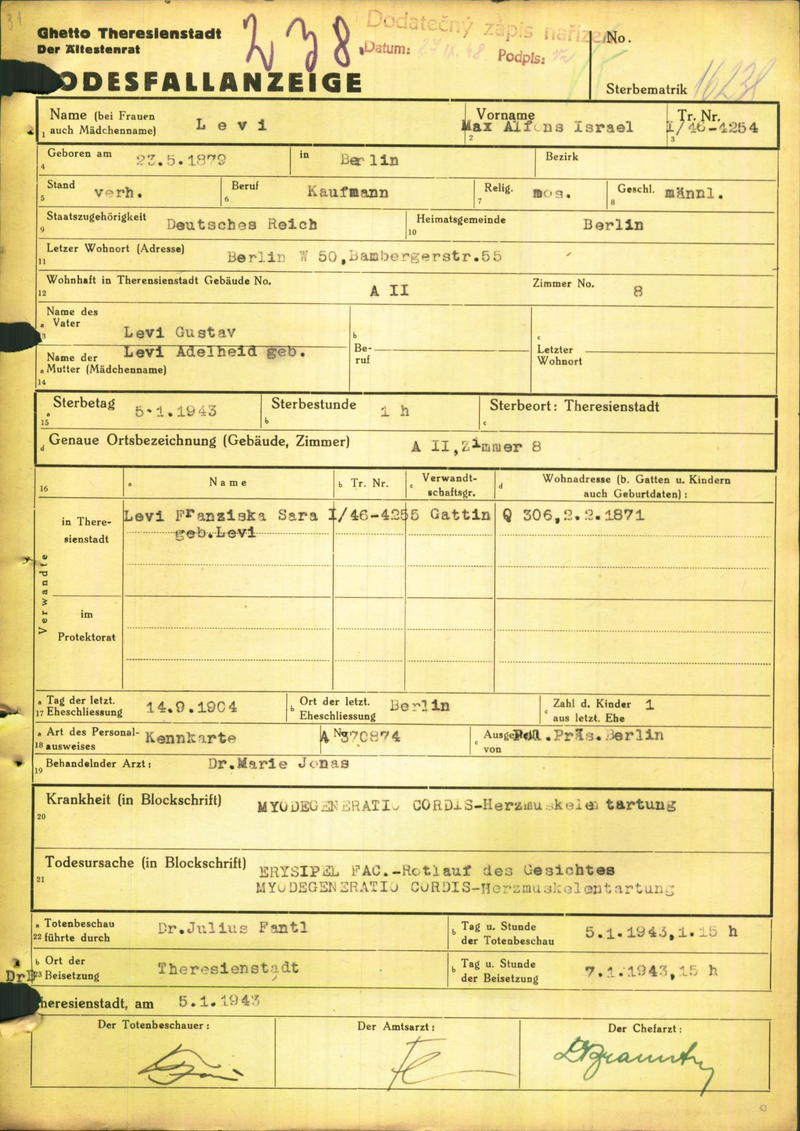 31
Ghetto Theresienstadt
Der Ältestenrat
238
Dodatečný zápis nařízen
Datum:
Podpis:
No.
Sterbematrik 16238
ODESFALLANZEIGE
Name (bei Frauen auch Mädchenname) 1 Levi Vorname 2 Max Alfons Israel Tr. Nr. 3 I/46-4254
Geboren am 4 23.5.1879 in Berlin Bezirk
Stand 5 verh. Beruf 6 Kaufmann Relig. 7 mos. Geschl. 8 männl.
Staatszugehörigkeit 9 Deutsches Reich Heimatsgemeinde 10 Berlin
Letzer Wohnort (Adresse) 11 Berlin W 50,Bambergerstr.55
Wohnhaft in Theresienstadt Gebäude No. 12 A II Zimmer No. 8
Name des
a Vater Levi Gustav
Name der Levi Adelheid geb.
a Mutter (Mädchenname)
14
b Beruf
c Letzter Wohnort
Sterbetag a 15 5.1.1943 Sterbestunde b 1 h Sterbeort: Theresienstadt c
d Genaue Ortsbezeichnung (Gebäude, Zimmer) A II,Zimmer 8
16 a Name b Tr. Nr. c Verwandt-schaftsgr. d Wohnadresse (b. Gatten u. Kindern auch Geburtdaten) :
Verwandte
in There-sienstadt
Levi Franziska Sara I/46-4255 Gattin Q 306,2.2.1871
geb.Levi
im Protektorat
a Tag der letzt. 17 Eheschliessung 14.9.1904 b Ort der letzt. Eheschliessung Berlin c Zahl d. Kinder aus letzt. Ehe 1
a Art des Personal- 18 ausweises Kennkarte b No. A 370874 c Ausgest. von Pol.Präs.Berlin
19 Behandelnder Arzt: Dr.Marie Jonas
Krankheit (in Blockschrift) 20 MYODEGENERATIO CORDIS-Herzmuskelentartung
Todesursache (in Blockschrift) 21 ERYSIPEL FAC.-Rotlauf des Gesichtes
MYODEGENERATIO CORDIS-Herzmuskelentartung
a Totenbeschau 22 führte durch Dr.Julius Fantl b Tag u. Stunde der Totenbeschau 5.1.1943,1.15 h
b Ort der 23 Beisetzung Theresienstadt b Tag u. Stunde der Beisetzung 7.1.1943,15 h
heresienstadt, am 5.1.1943
Der Totenbeschauer: Der Amtsarzt: Der Chefarzt: